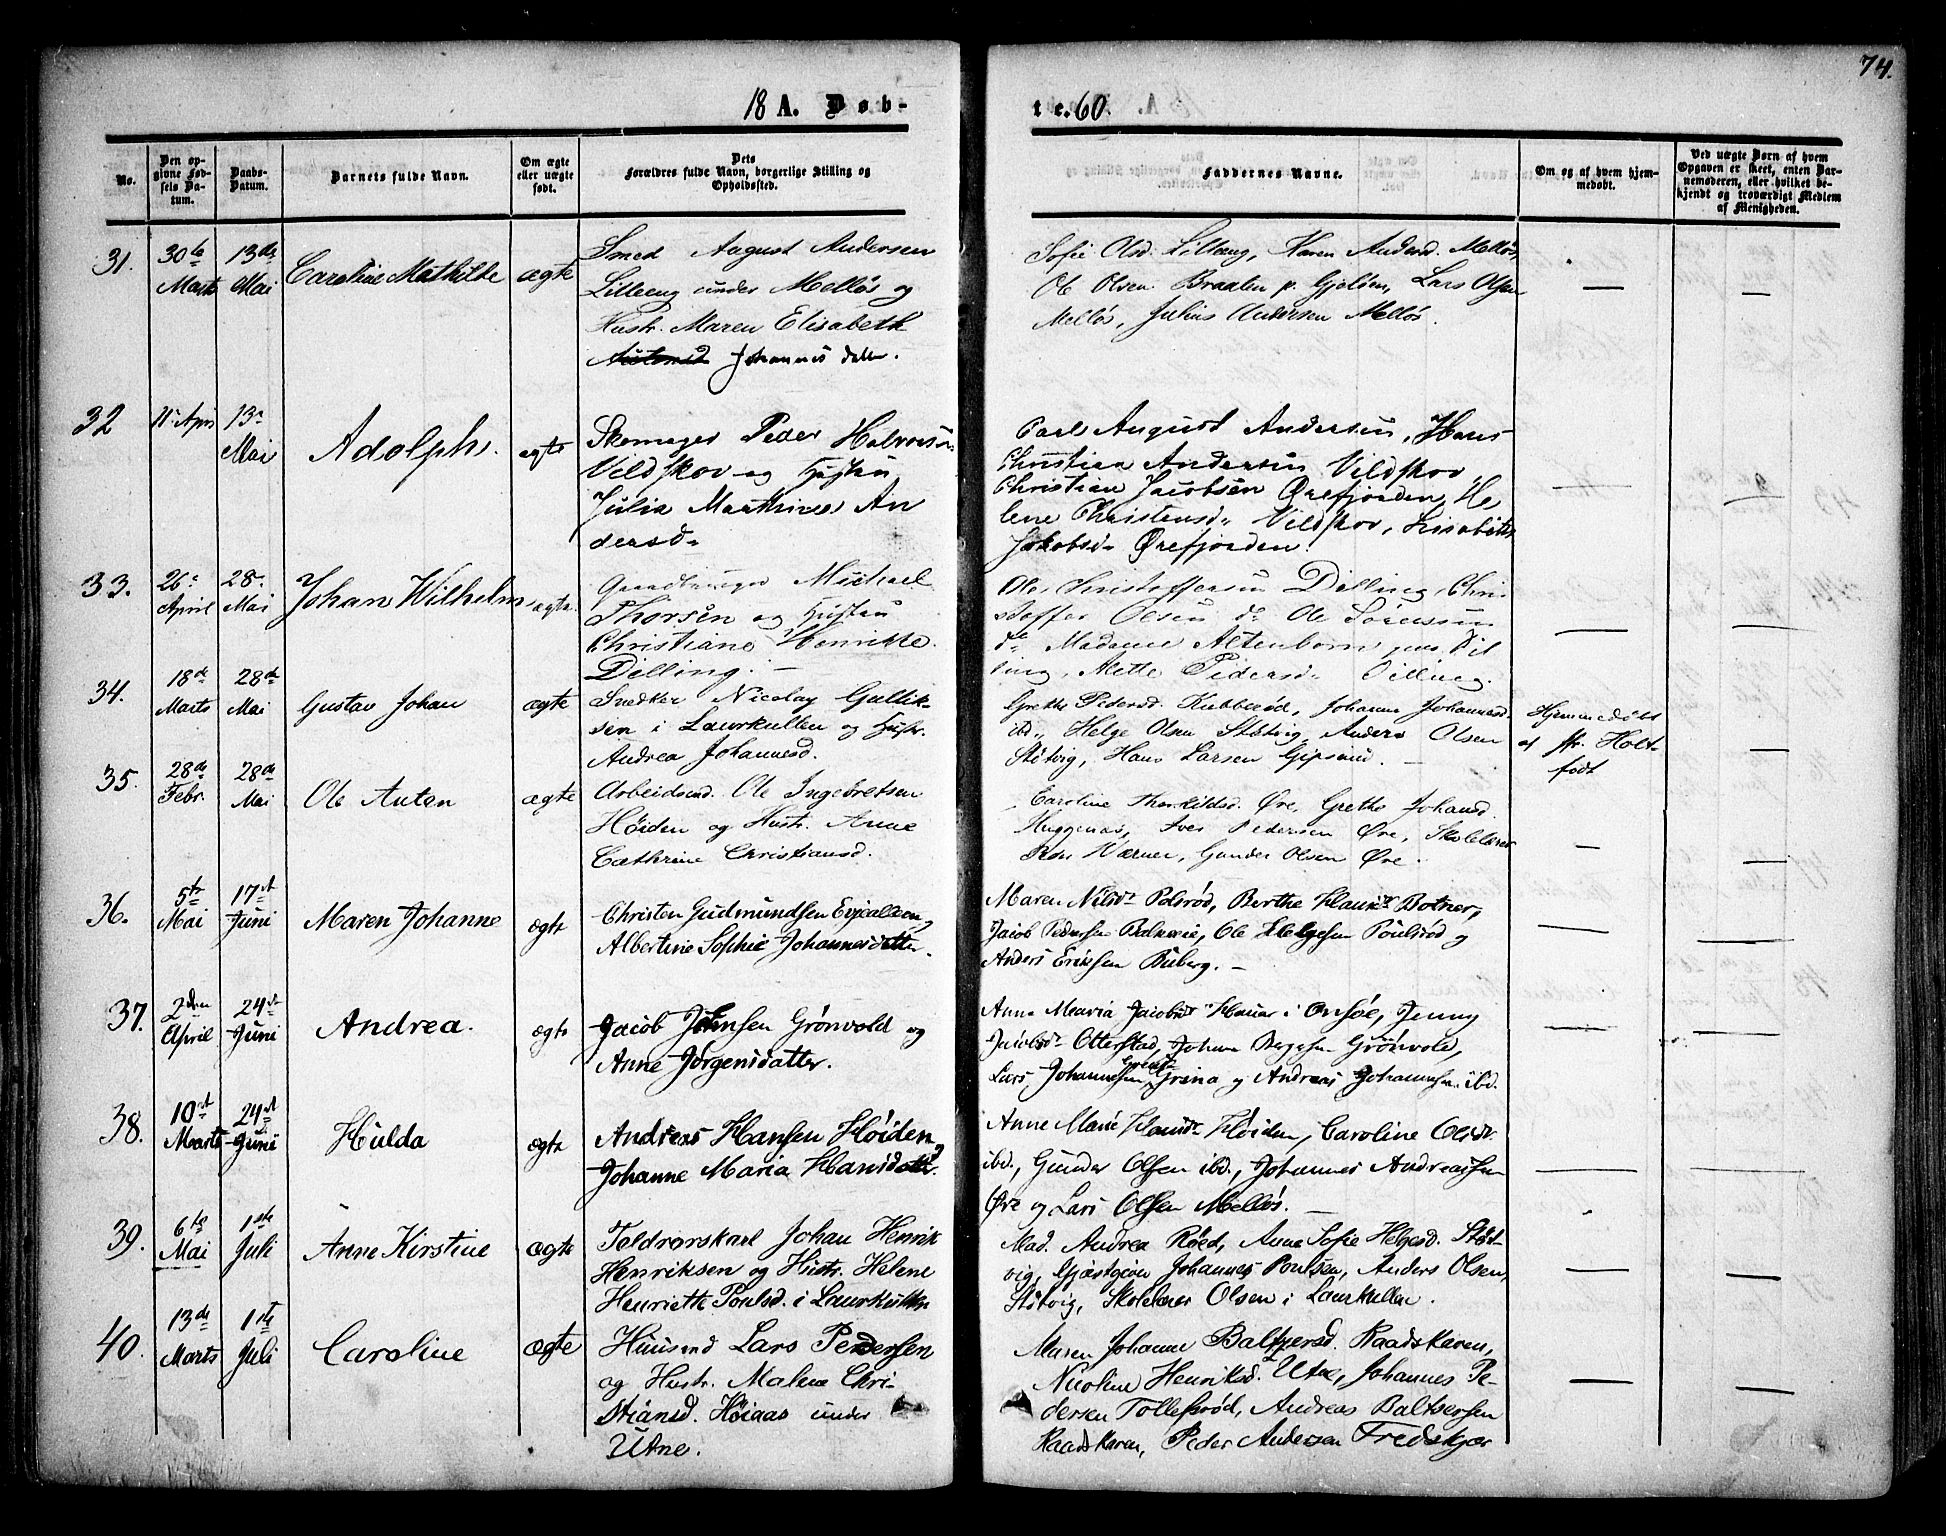 74.
18 A. Døb-
te. 60.
No.
Den op-
givne Fød-
sels Da-
tum.
Daabs-
Datum.
Barnets fulde Navn.
Om ægte
eller uægte
født.
Dets
Forældres fulde Navn, borgerlige Stilling og
Opholdssted.
Faddernes Navne.
Om og af hvem hjem-
medøbt.
Ved uægte Børn af hvem
Opgaven er skeet, enten Bar-
nemoderen, eller hvilket be-
kjendt og troværdigt Medlem
af Menigheden.
31.
30te
Marts
13de
Mai
Caroline Mathilde
ægte
Smed August Andersen
Lilleeng under Melløs og
Hustr. Maren Elisabeth
Johannes datter.
Sofie Olsd. Lilleeng, Karen Andersd. Melløs,
Ole Olsen Braaten p. Gjeløen, Lars Olsen
Melløs, Julius Andersen Melløs.
32
11' April
13'
Mai
Adolph.
ægte
Skomager Peder Halvorsen
Vildskov og Hustru
Julia Marthines An
dersd.
Carl August Andersen, Hans
Christian Andersen Vildskov
Christian Jacobsen Ørefjorden, He
lene Christensd. Vildskov, Lisabeth
Jakobsd. Ørefjorden.
33.
26'
April
28'
Mai
Johan Wilhelm
ægte.
Gaardbruger Michael
Thorsen og Hustru
Christiane Henrikke
Dilling. —
Ole Kristoffersen Dilling, Chri-
stoffer Olsen do Ole Sørensen
do Madame Altenborn paa Dil
ling, Alette Pedersd. Dilling.
34.
18de
Marts
28de
Mai
Gustav Johan
ægte
Snedker Nicolay Gullik-
sen i Laurkullen og Hustr.
Andrea Johannesd.
Grethe Pedersd. Kubberød, Johanne Johannesd.
ibd., Helge Olsen Støtvig, Anders Olsen
Støtvig, Hans Larsen Gipsund. —
Hjemmedøbt
af Fr. Holt-
født
35.
28de
Febr.
28de
Mai
Ole Anton
ægte
Arbeidsmd. Ole Ingebretsen
Høiden og Hustr. Anne
Cathrine Christiansd.
Caroline Thorkildsd. Øre, Grethe Johansd.
Huggenes, Iver Pedersen Øre, Skolelærer
Værner, Gunder Olsen Øre.
36.
5te
Mai
17de
Juni
Maren Johanne
ægte
Christen Gudmundsen Evjeløkken og
Albertine Sophie Johannesdatter.
Maren Nilsdr. Polsrød, Berthe Hansdr. Botner,
Jacob Pedersen Balneie, Ole Helgesen Poulsrød og
Anders Eriksen Buberg. —
37.
2den
April
24de
Juni
Andrea.
ægte
Jacob Johnsen Grönvold og
Anne Jörgensdatter.
Anne Maria Jacobsdr. Hauar i Onsöe, Jenny
Jacobsdr. Otterstad, Johan Grönvold,
Lars Johannesen Grina og Andreas Johannesen ibd.
38.
10de
Marts
24de
Juni
Hulda
ægte
Andreas Hansen Høiden og
Johanne Maria Hansdatter.
Anne Marie Hansdr. Høiden, Caroline Olsdr.
ibd., Gunder Olsen ibd., Johannes Andreassen
Øre og Lars Olsen Melløs. —
39.
6te
Mai
1ste
Juli
Anne Kirstine
ægte
Toldrorskarl Johan Henrik
Henriksen og Hustr. Helene
Henriette Poulsd. i Laurkullen
Mad. Andrea Røed, Anne Sofie Helgesd. Støt-
vig, Gjæstgiver Johannes Poulsen, Anders Olsen,
Støtvig, Skolelærer Olsen i Laurkullen.
40.
13de
Marts
1ste
Juli
Caroline
ægte
Huusmd Lars Pedersen
og Hustr. Malene Chri-
stiansd. Høiaas under
Utne.
Maren Johanne Baltzersd. Raadskaren,
Nicoline Henriksd. Utne, Johannes Pe-
dersen Tollefsrød, Andreas Baltsersen
Raadskaren, Peder Andersen Fredskjær